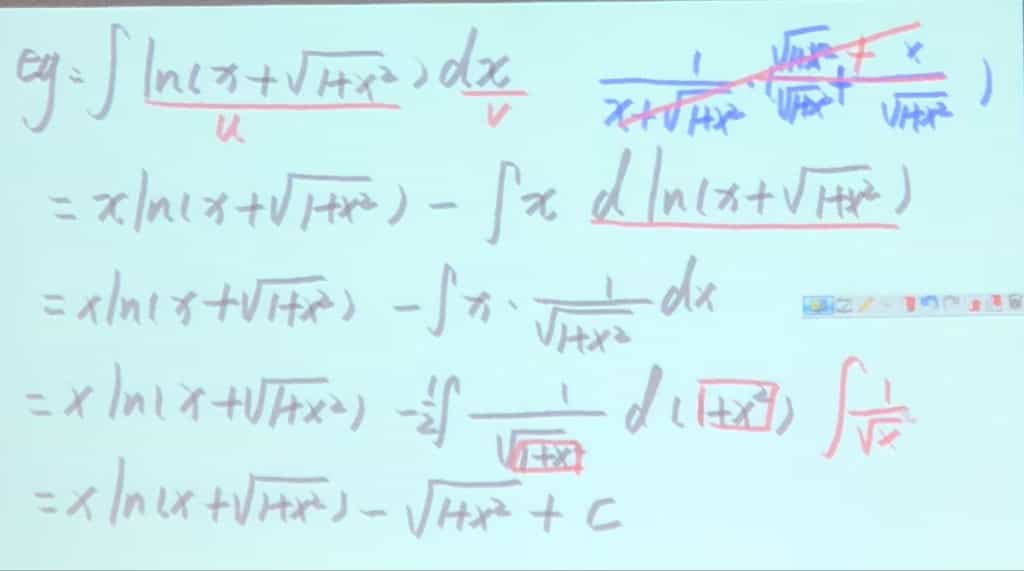 eg: ∫ ln(x+√(1+x²)) dx
u v
1/(x+√(1+x²)) · (√(1+x²)/√(1+x²) + x/√(1+x²))
= x ln(x+√(1+x²)) - ∫ x d ln(x+√(1+x²))
= x ln(x+√(1+x²)) - ∫ x · 1/√(1+x²) dx
= x ln(x+√(1+x²)) - 1/2 ∫ 1/√(1+x²) d(1+x²) ∫ 1/√x
= x ln(x+√(1+x²)) - √(1+x²) + C